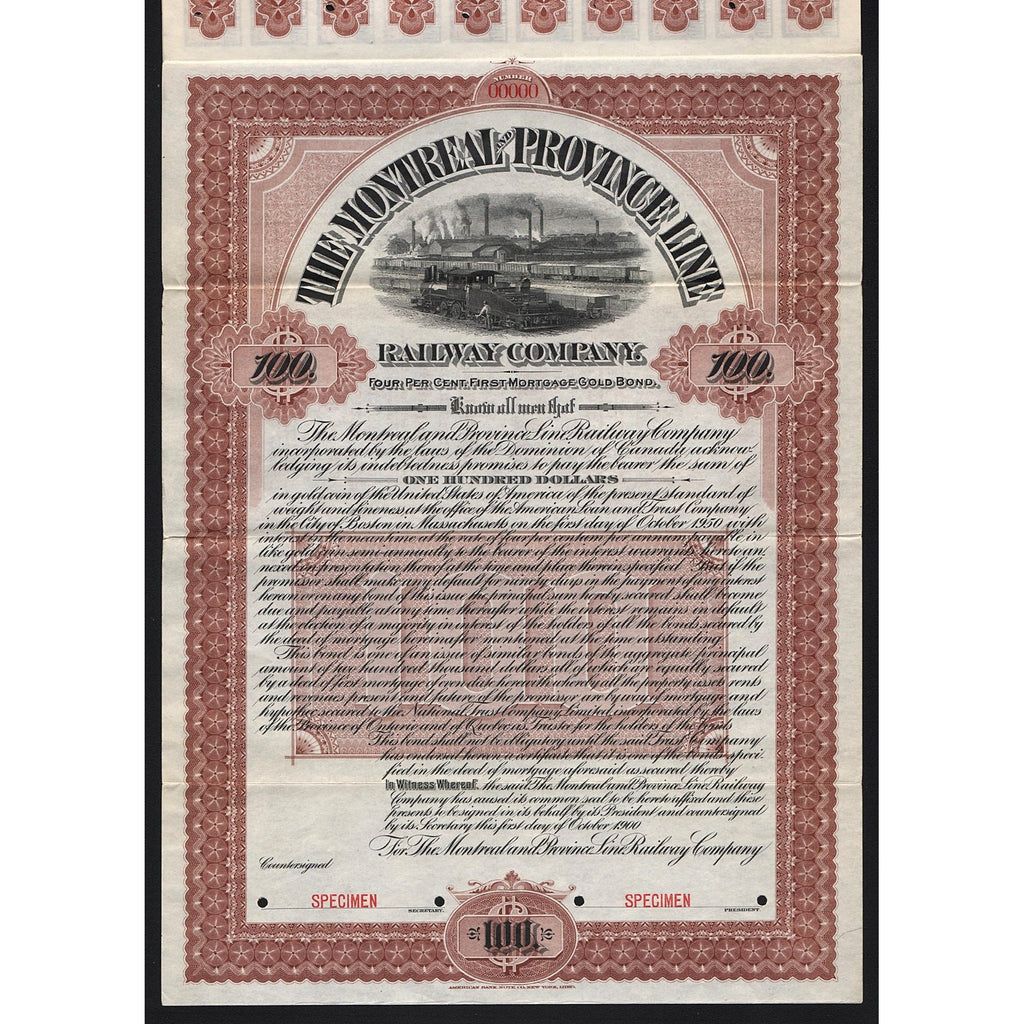 NUMBER
00000
THE MONTREAL AND PROVINCE LINE
RAILWAY COMPANY.
100. 100.
FOUR PER CENT. FIRST MORTGAGE GOLD BOND.
Know all men that
The Montreal and Province Line Railway Company
incorporated by the laws of the Dominion of Canada acknow-
ledging its indebtedness promises to pay the bearer the sum of
ONE HUNDRED DOLLARS
in gold coin of the United States of America of the present standard of
weight and fineness at the office of the American Loan and Trust Company
in the City of Boston in Massachusetts on the first day of October 1950 with
interest thereon at the rate of four per cent per annum payable in
like gold coin semi-annually to the bearer of the interest warrants hereto an-
nexed on presentation thereof at the time and place therein specified If the
promissor shall make any default for ninety days in the payment of any interest
hereon or on any bond of this issue the principal sum hereby secured shall become
due and payable at any time thereafter while the interest remains in default
at the election of a majority in interest of the holders of all the bonds secured by
the deed of mortgage hereinafter mentioned at the time outstanding
This bond is one of an issue of similar bonds of the aggregate principal
amount of two hundred thousand dollars all of which are equally secured
by a deed of first mortgage of even date herewith whereby all the property assets rents
and revenues present and future of the promissor are by way of mortgage and
hypothec secured to the National Trust Company Limited authorized by the laws
of the Province of Ontario and of Quebec as Trustee for the holders of the bonds
This bond shall not be obligatory until the said Trust Company
has endorsed hereon a certificate that it is one of the bonds speci-
fied in the deed of mortgage aforesaid as secured thereby
In Witness Whereof, the said The Montreal and Province Line Railway
Company has caused its common seal to be hereto affixed and these
presents to be signed in its behalf by its President and countersigned
by its Secretary this first day of October 1900
For The Montreal and Province Line Railway Company
Countersigned
SPECIMEN SPECIMEN
SECRETARY. PRESIDENT.
100.
AMERICAN BANK NOTE CO. NEW YORK, LIMD.